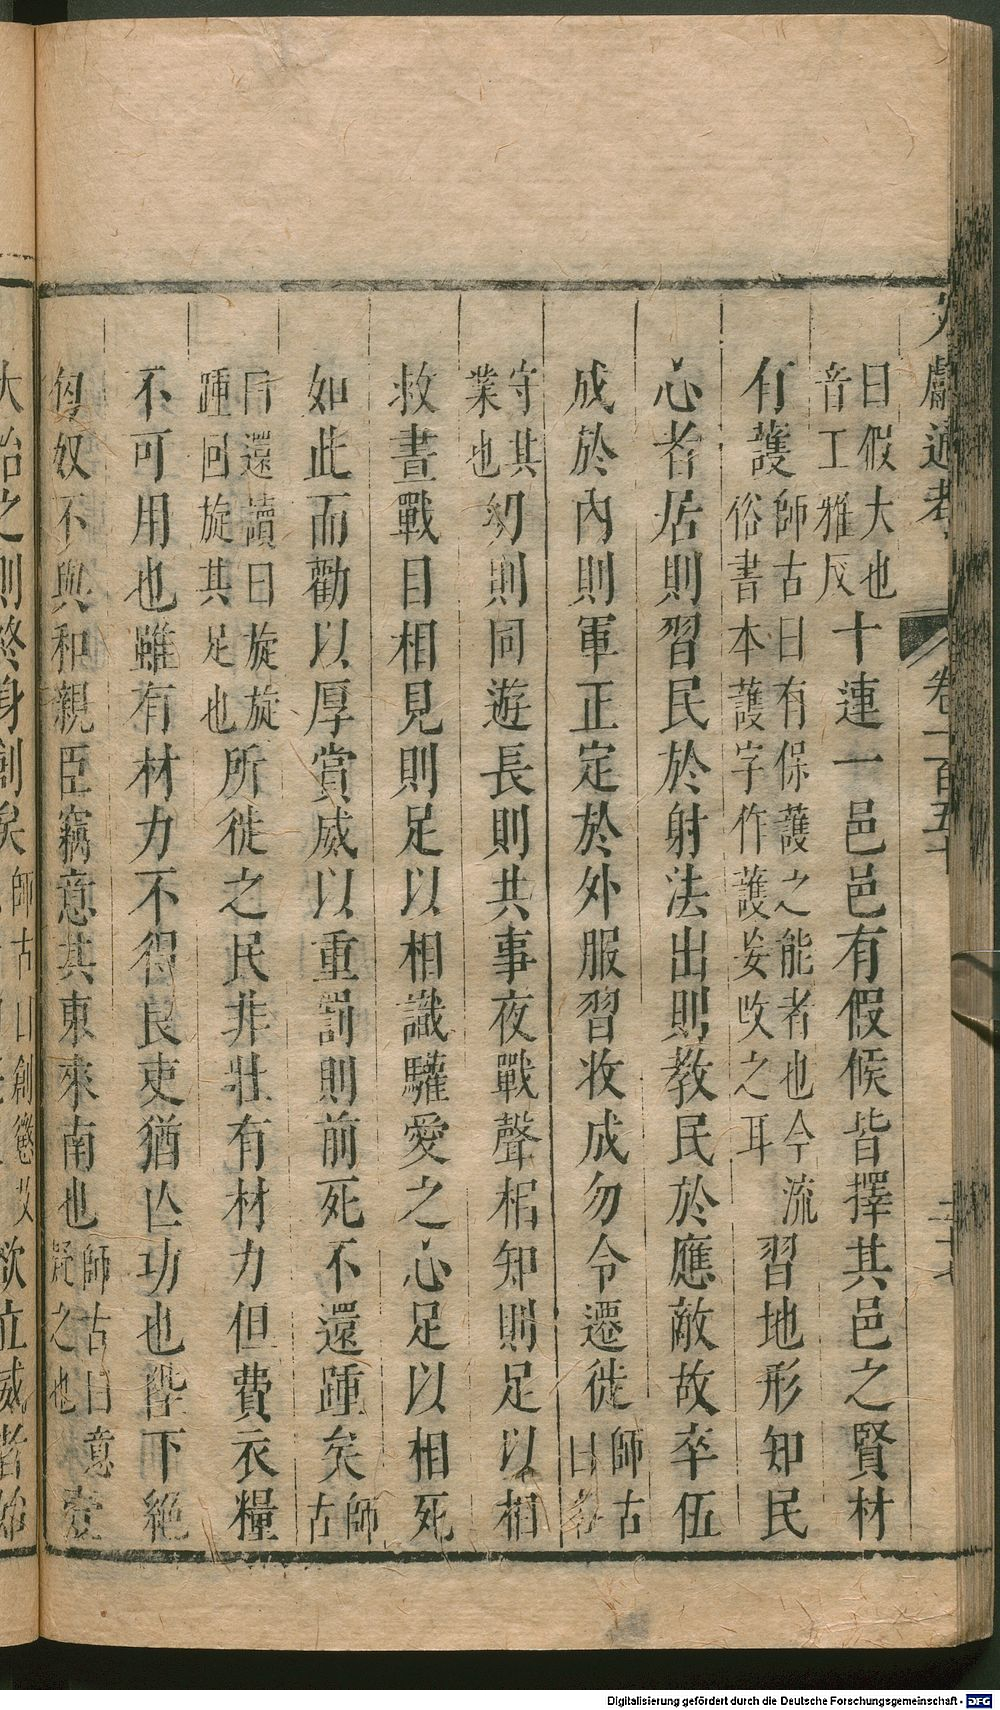 文獻通考 卷一百五十 二十七
曰假大也音工雅反十連一邑邑有假候皆擇其邑之賢材
有護師古曰有保護之能者也今流俗書本護字作護妄改之耳習地形知民
心者居則習民於射法出則教民於應敵故卒伍
成於內則軍正定於外服習收成勿令遷徙師古曰各
守其業也幼則同遊長則共事夜戰聲相知則足以相
救晝戰目相見則足以相識驩愛之心足以相死
如此而勸以厚賞威以重罰則前死不還踵矣師古
曰還讀曰旋旋踵回旋其足也所徙之民非壯有材力但費衣糧
不可用也雖有材力不得良吏猶亡功也陛下絕
匈奴不與和親臣竊意其東來南也師古曰意疑之也壹
大治之則終身創矣師古曰創懲艾 欲立威者始
Digitalisierung gefördert durch die Deutsche Forschungsgemeinschaft - DFG